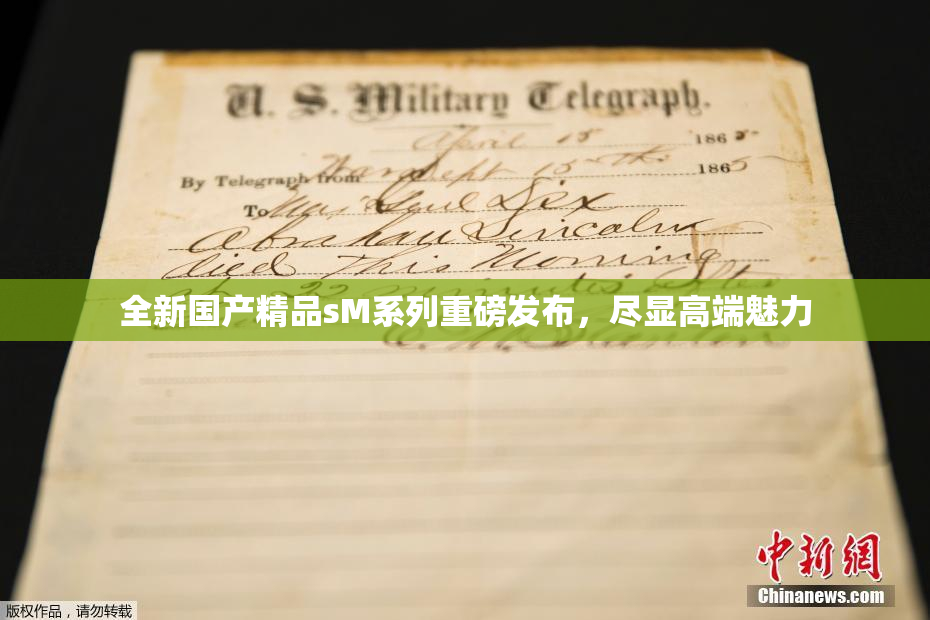 U. S. Military Telegraph.
April 15 1865
By Telegraph from War Dept 15th 1865
To Maj Genl Dix
Abraham Lincoln
died This Morning
at 22 minutes after
全新国产精品sM系列重磅发布，尽显高端魅力
E. M. Stanton
中新网
Chinanews.com
版权作品，请勿转载